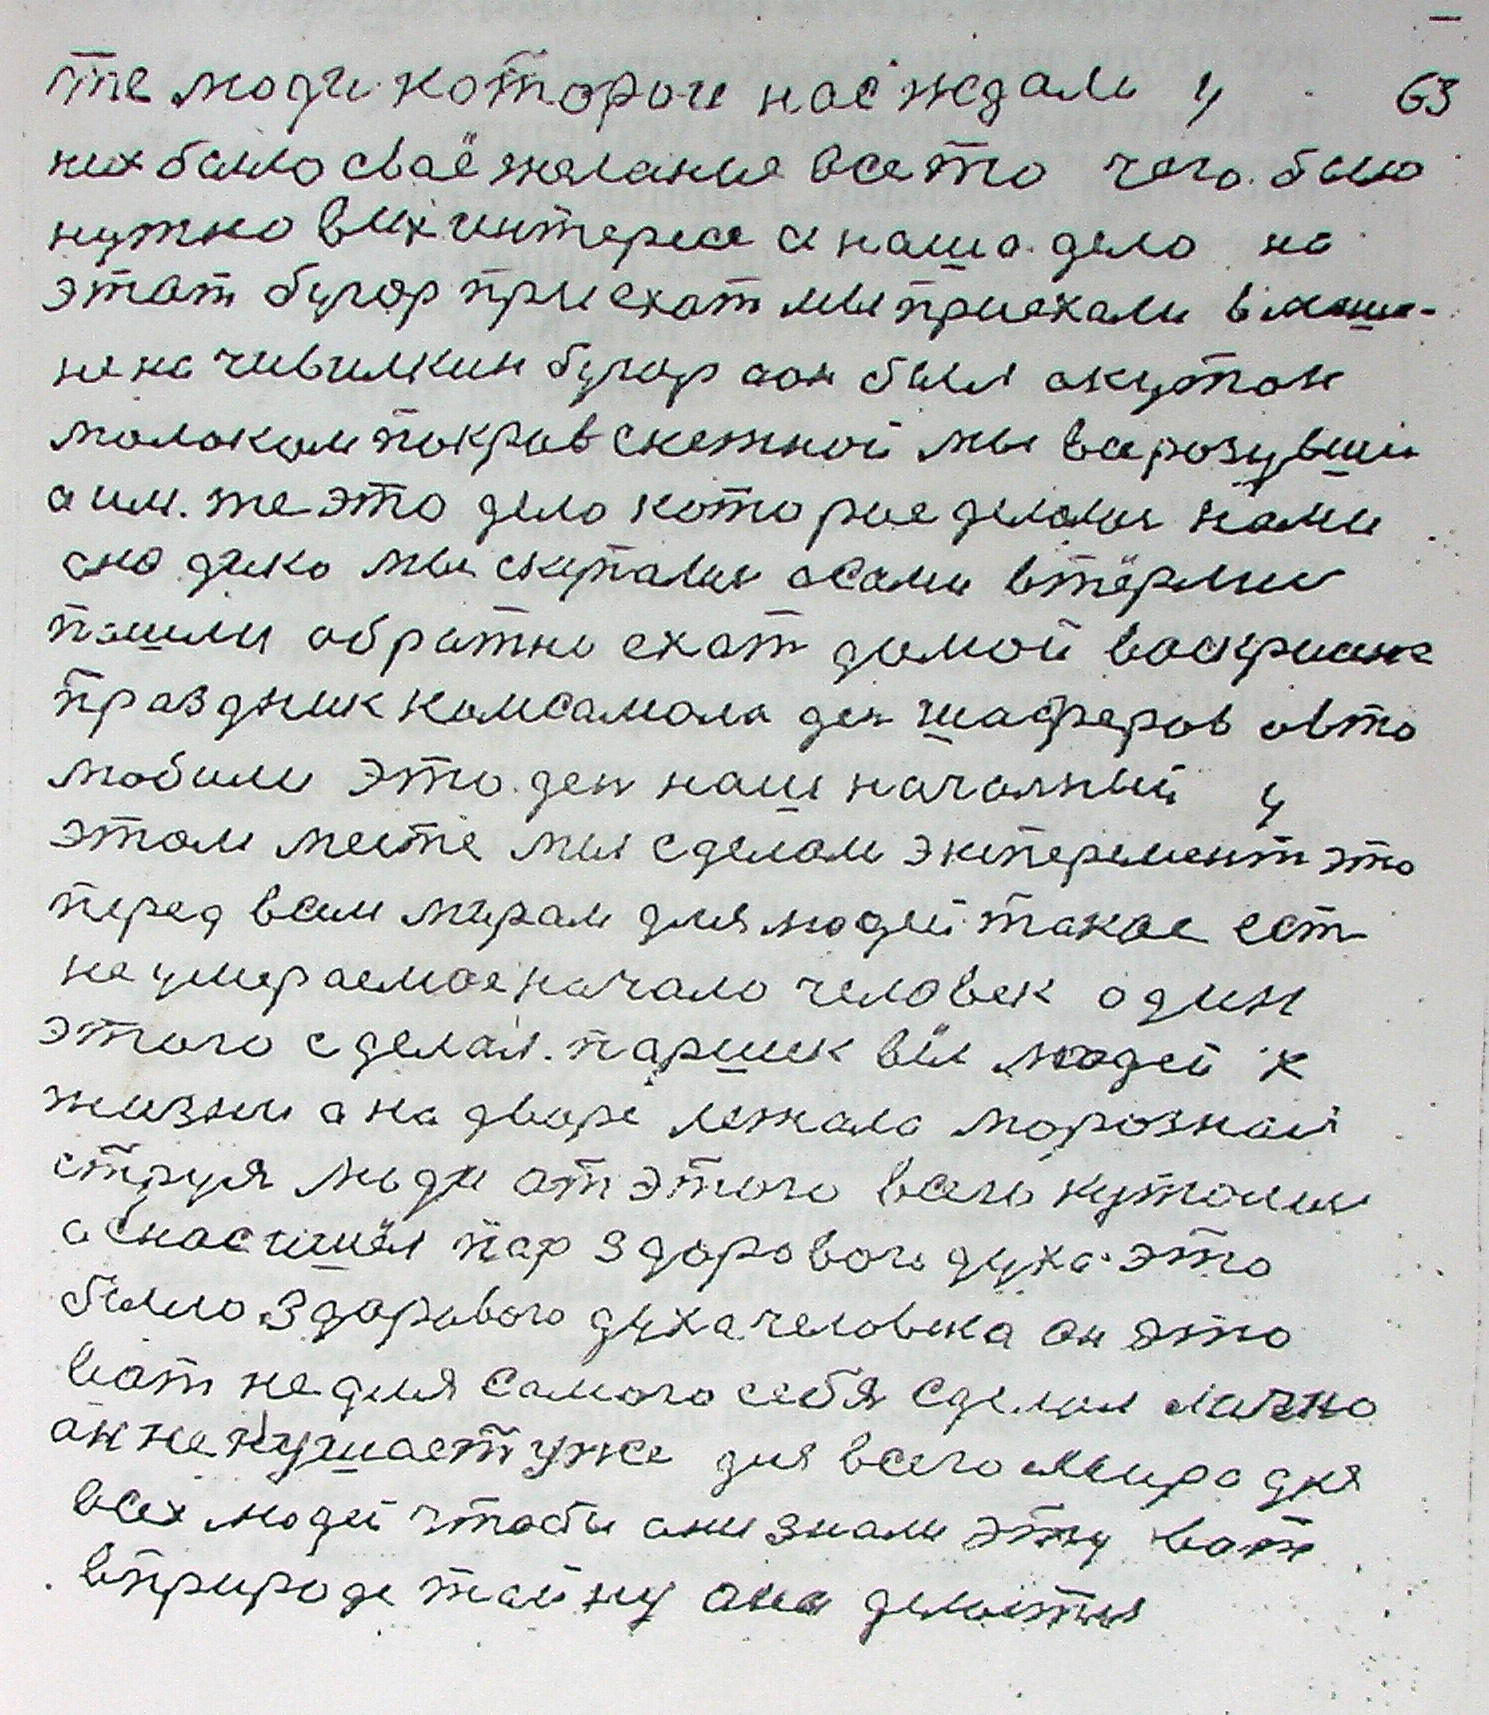 те люди котораи нас ждали у 63
них было сваё желание все то чего было
нужно в их интересе а наша дело на
этат бугор приехат мы приехали в маши-
не на чивилкин бугор аон был акутан
молоком покров снежной мы все розувши
а им. же это дело которое делалис нами
оно дико мы скупалис асами втёрлис
пашли обратно ехат домой
праздник комсамола ден шаферов авто
мобили это ден наш началный у
этом месте мы сделали эксперемент это
перед всем мирам для людей такое ест
не умераемое начало человек один
этого сделал. паршек вёл людей к
жизни а на дваре лежала марозная
струя люди от этого всего куталис
а снас ишёл пар здорового духа это
было здорового духа человека он это
вот не для самого себя сделал лично
он не кушает уже для всего мира для
всех людей чтобы они знали эту вот
в природе тайну она делаится